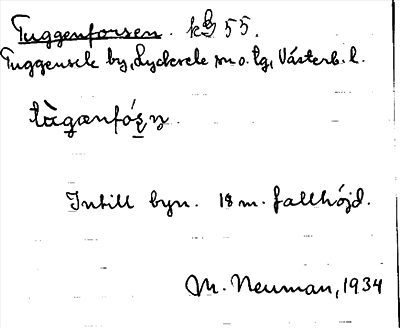 Tuggenforsen. kB 55.
Tuggensele by, Lycksele sn o. lg, Västerb. l.
tùgænfórsn.
Intill byn. 18 m. fallhöjd.
M. Neuman, 1934